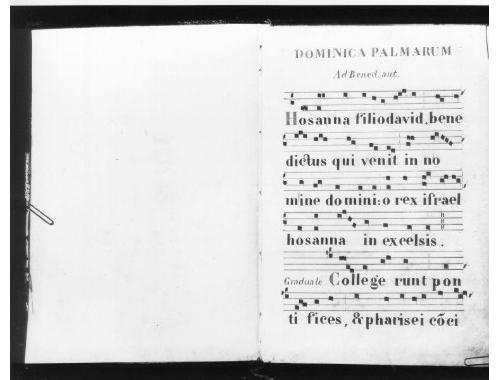 DOMINICA PALMARUM
Ad Bened. ant.
Hosanna filio david, bene
dictus qui venit in no
mine domini: o rex israel
hosanna in excelsis.
Graduale College runt pon
ti fices, & pharisei cõci